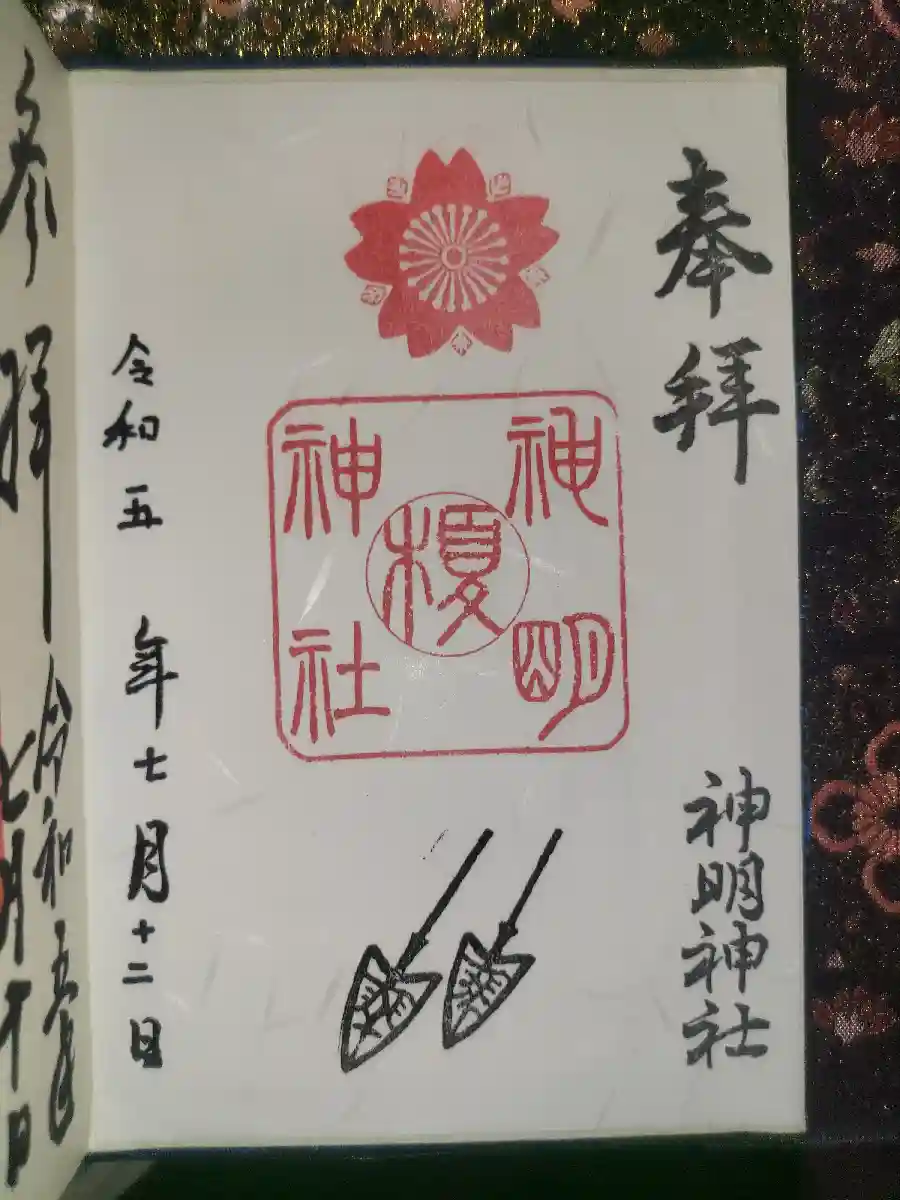 奉拝
神明神社
神明
榎
神社
令和五年七月十二日
参拝
令和五年
七月十日